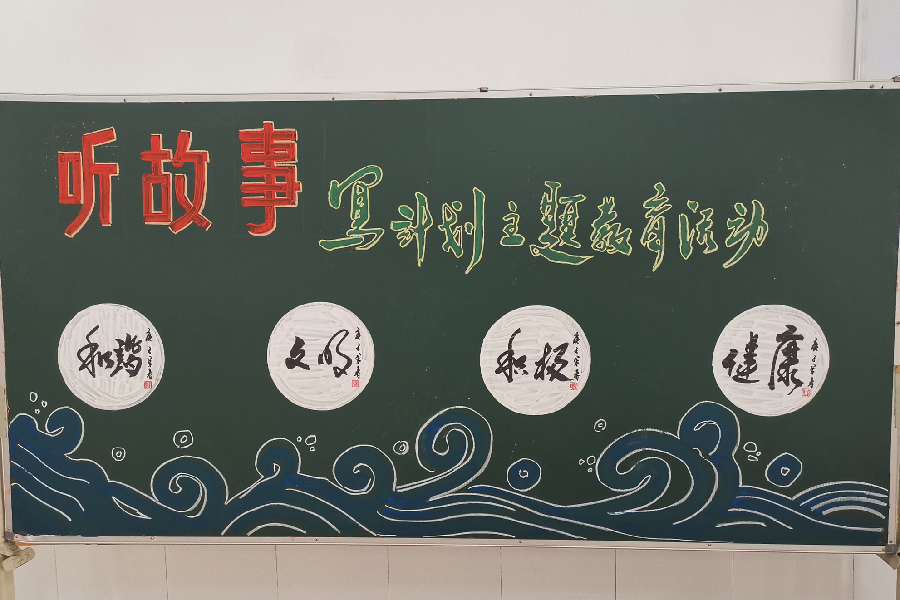 听故事
写计划主题教育活动
和谐
文明
积极
健康